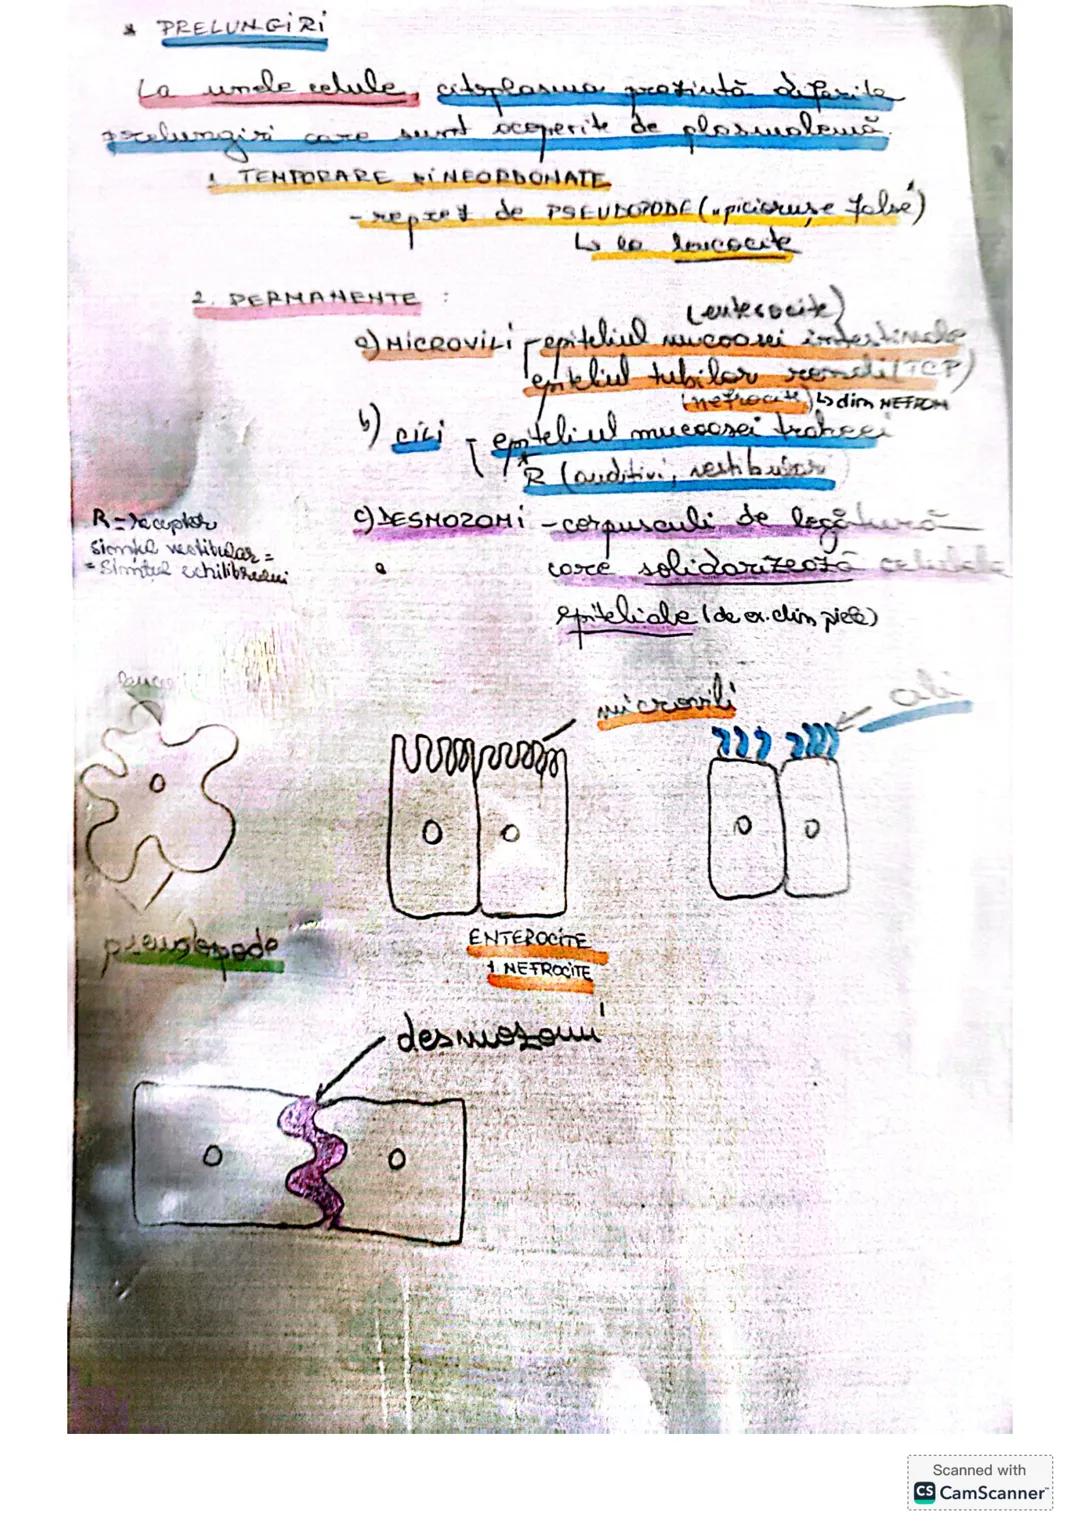 * PRELUNGIRI
La unele celule, citoplasma prezintă diferite
prelungiri care sunt acoperite de plasmalemă.
1. TEMPORARE ȘI NEORDONATE
- reprez de PSEUDOPODE ("piciorușe false")
↳ la leucocite
2. PERMANENTE :
(enterocite)
a) MICROVILI - epiteliul mucoasei intestinale
epiteliul tubilor renali (TCP)
(nefrocite) ↳ din NEFRON
b) cili - epiteliul mucoasei traheei
* R (auditivi, vestibulari
R = receptor
simțul vestibular =
= Simțul echilibrului
c) DESMOZOMI - corpusculi de legătură
care solidarizează celulele
epiteliale (de ex. din piele)
microvili
cili
pseudopode
ENTEROCITE
NEFROCITE
desmozomi
Scanned with
CS CamScanner